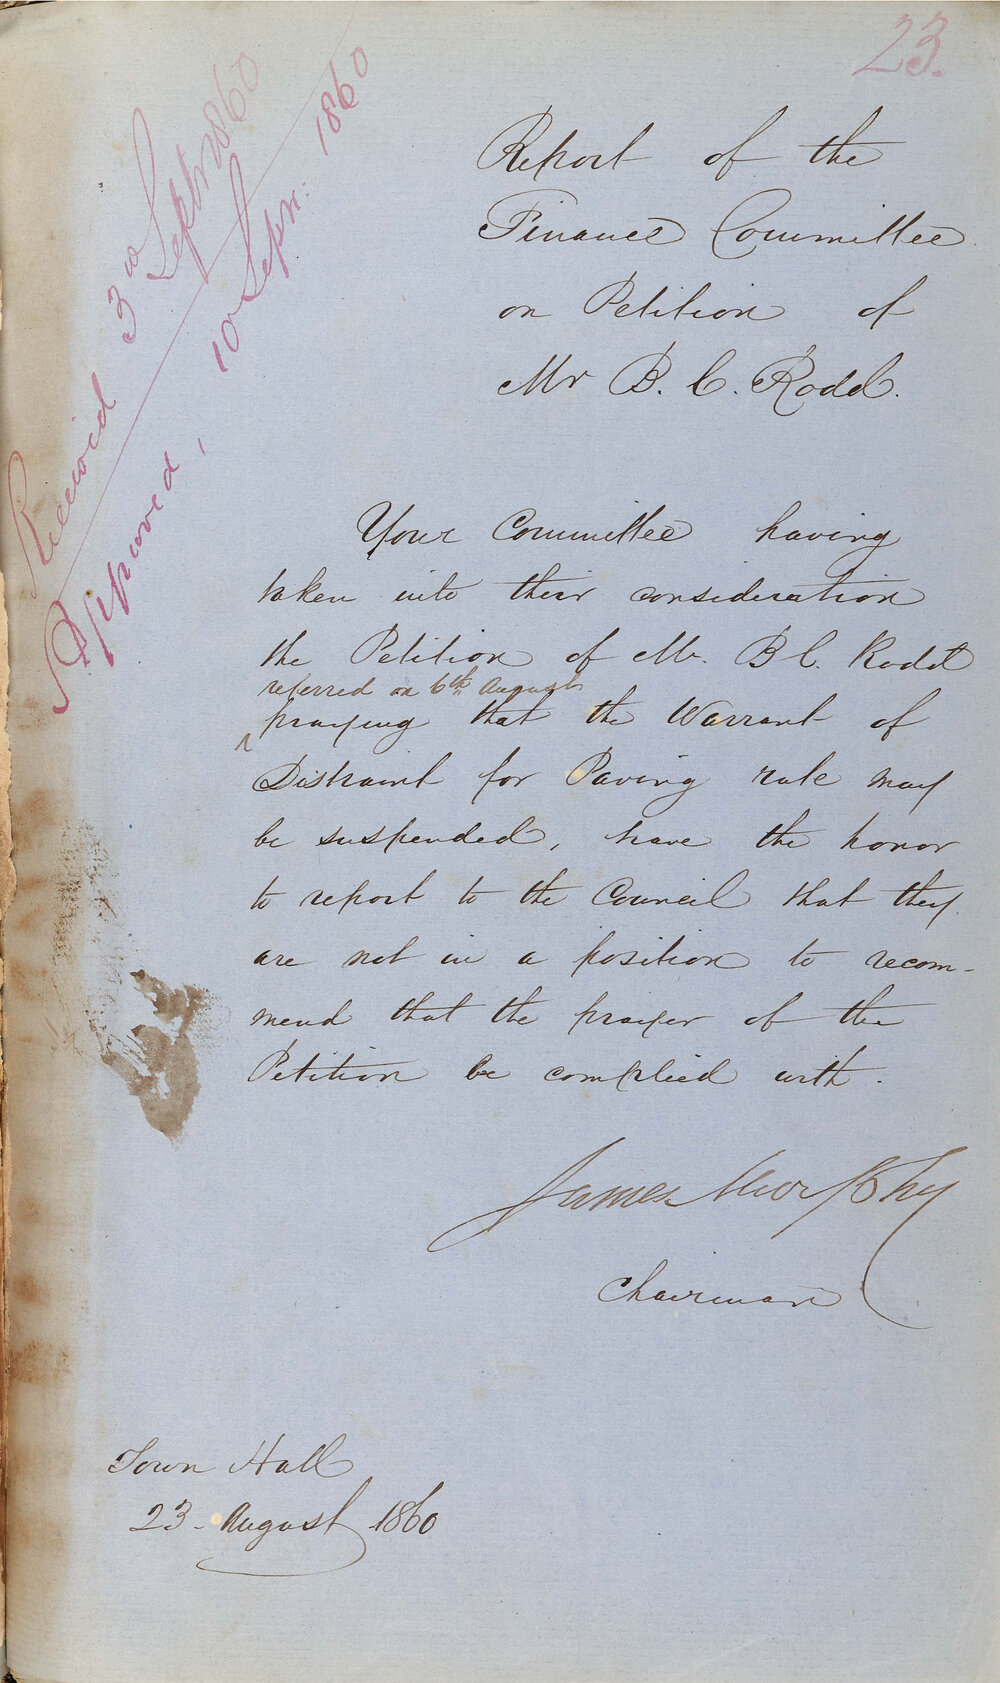 23.
Received 3rd Septr 1860
Approved, 10 Sepr: 1860
Report of the
Finance Committee
on Petition of
Mr B. C. Rodd.
Your Committee having
taken into their consideration
the Petition of Mr. B C. Rodd
referred on 6th August
praying that the Warrant of
Distraint for Paving rate may
be suspended, have the honor
to report to the Council that they
are not in a position to recom-
mend that the prayer of the
Petition be complied with.
James Murphy
Chairman
Town Hall
23 - August 1860